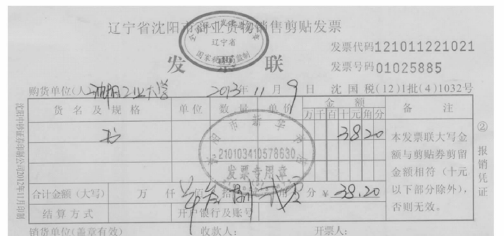 辽宁省沈阳市商业货物销售剪贴发票
发票联
辽宁省
发票代码 121011221021
发票号码 01025885
购货单位(人) 沈阳工业大学 2013年11月9日 沈国税(12)1批(4)1032号
货名及规格 单位 数量 单价 金额 备注
万千百十元角分
书 3820
本发票联大写金额与剪贴券剪留金额相符(十元以下部分除外),否则无效。
210103410578630
发票专用章
合计金额(大写) 万 仟 分 ¥38.20
结算方式 开户银行及账号
销货单位(盖章有效) 收款人: 开票人:
② 报销凭证